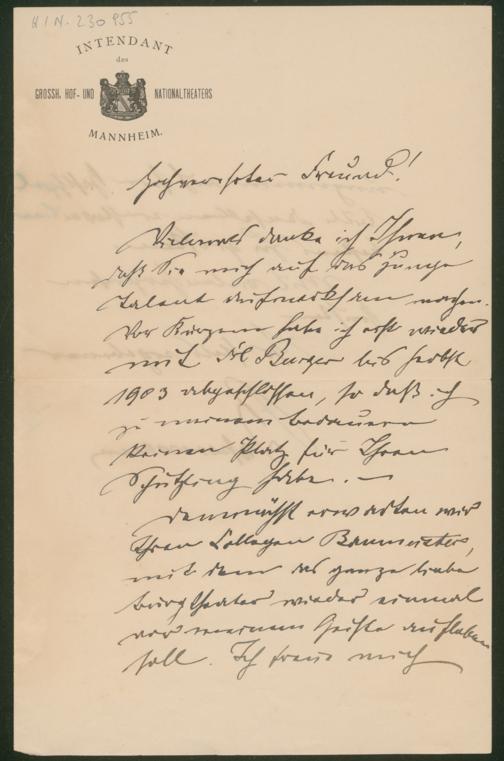 H.I.N. 230 955
INTENDANT
des
GROSSH. HOF- UND NATIONALTHEATERS
MANNHEIM.
Hochverehrter Freund!
Vielmals danke ich Ihnen,
daß Sie mich auf das junge
Talent aufmerksam machen.
Vor Kurzem habe ich erst wieder
mit Frl Burger bis Herbst
1903 abgeschlossen, so daß ich
zu meinem Bedauern
keinen Platz für Ihren
Schützling habe. —
Demnächst erwarten wir
Ihren Collegen Baumeister,
mit dem das ganze liebe
Burgtheater wieder einmal
vor meinem Geiste aufleben
soll. Ich freue mich